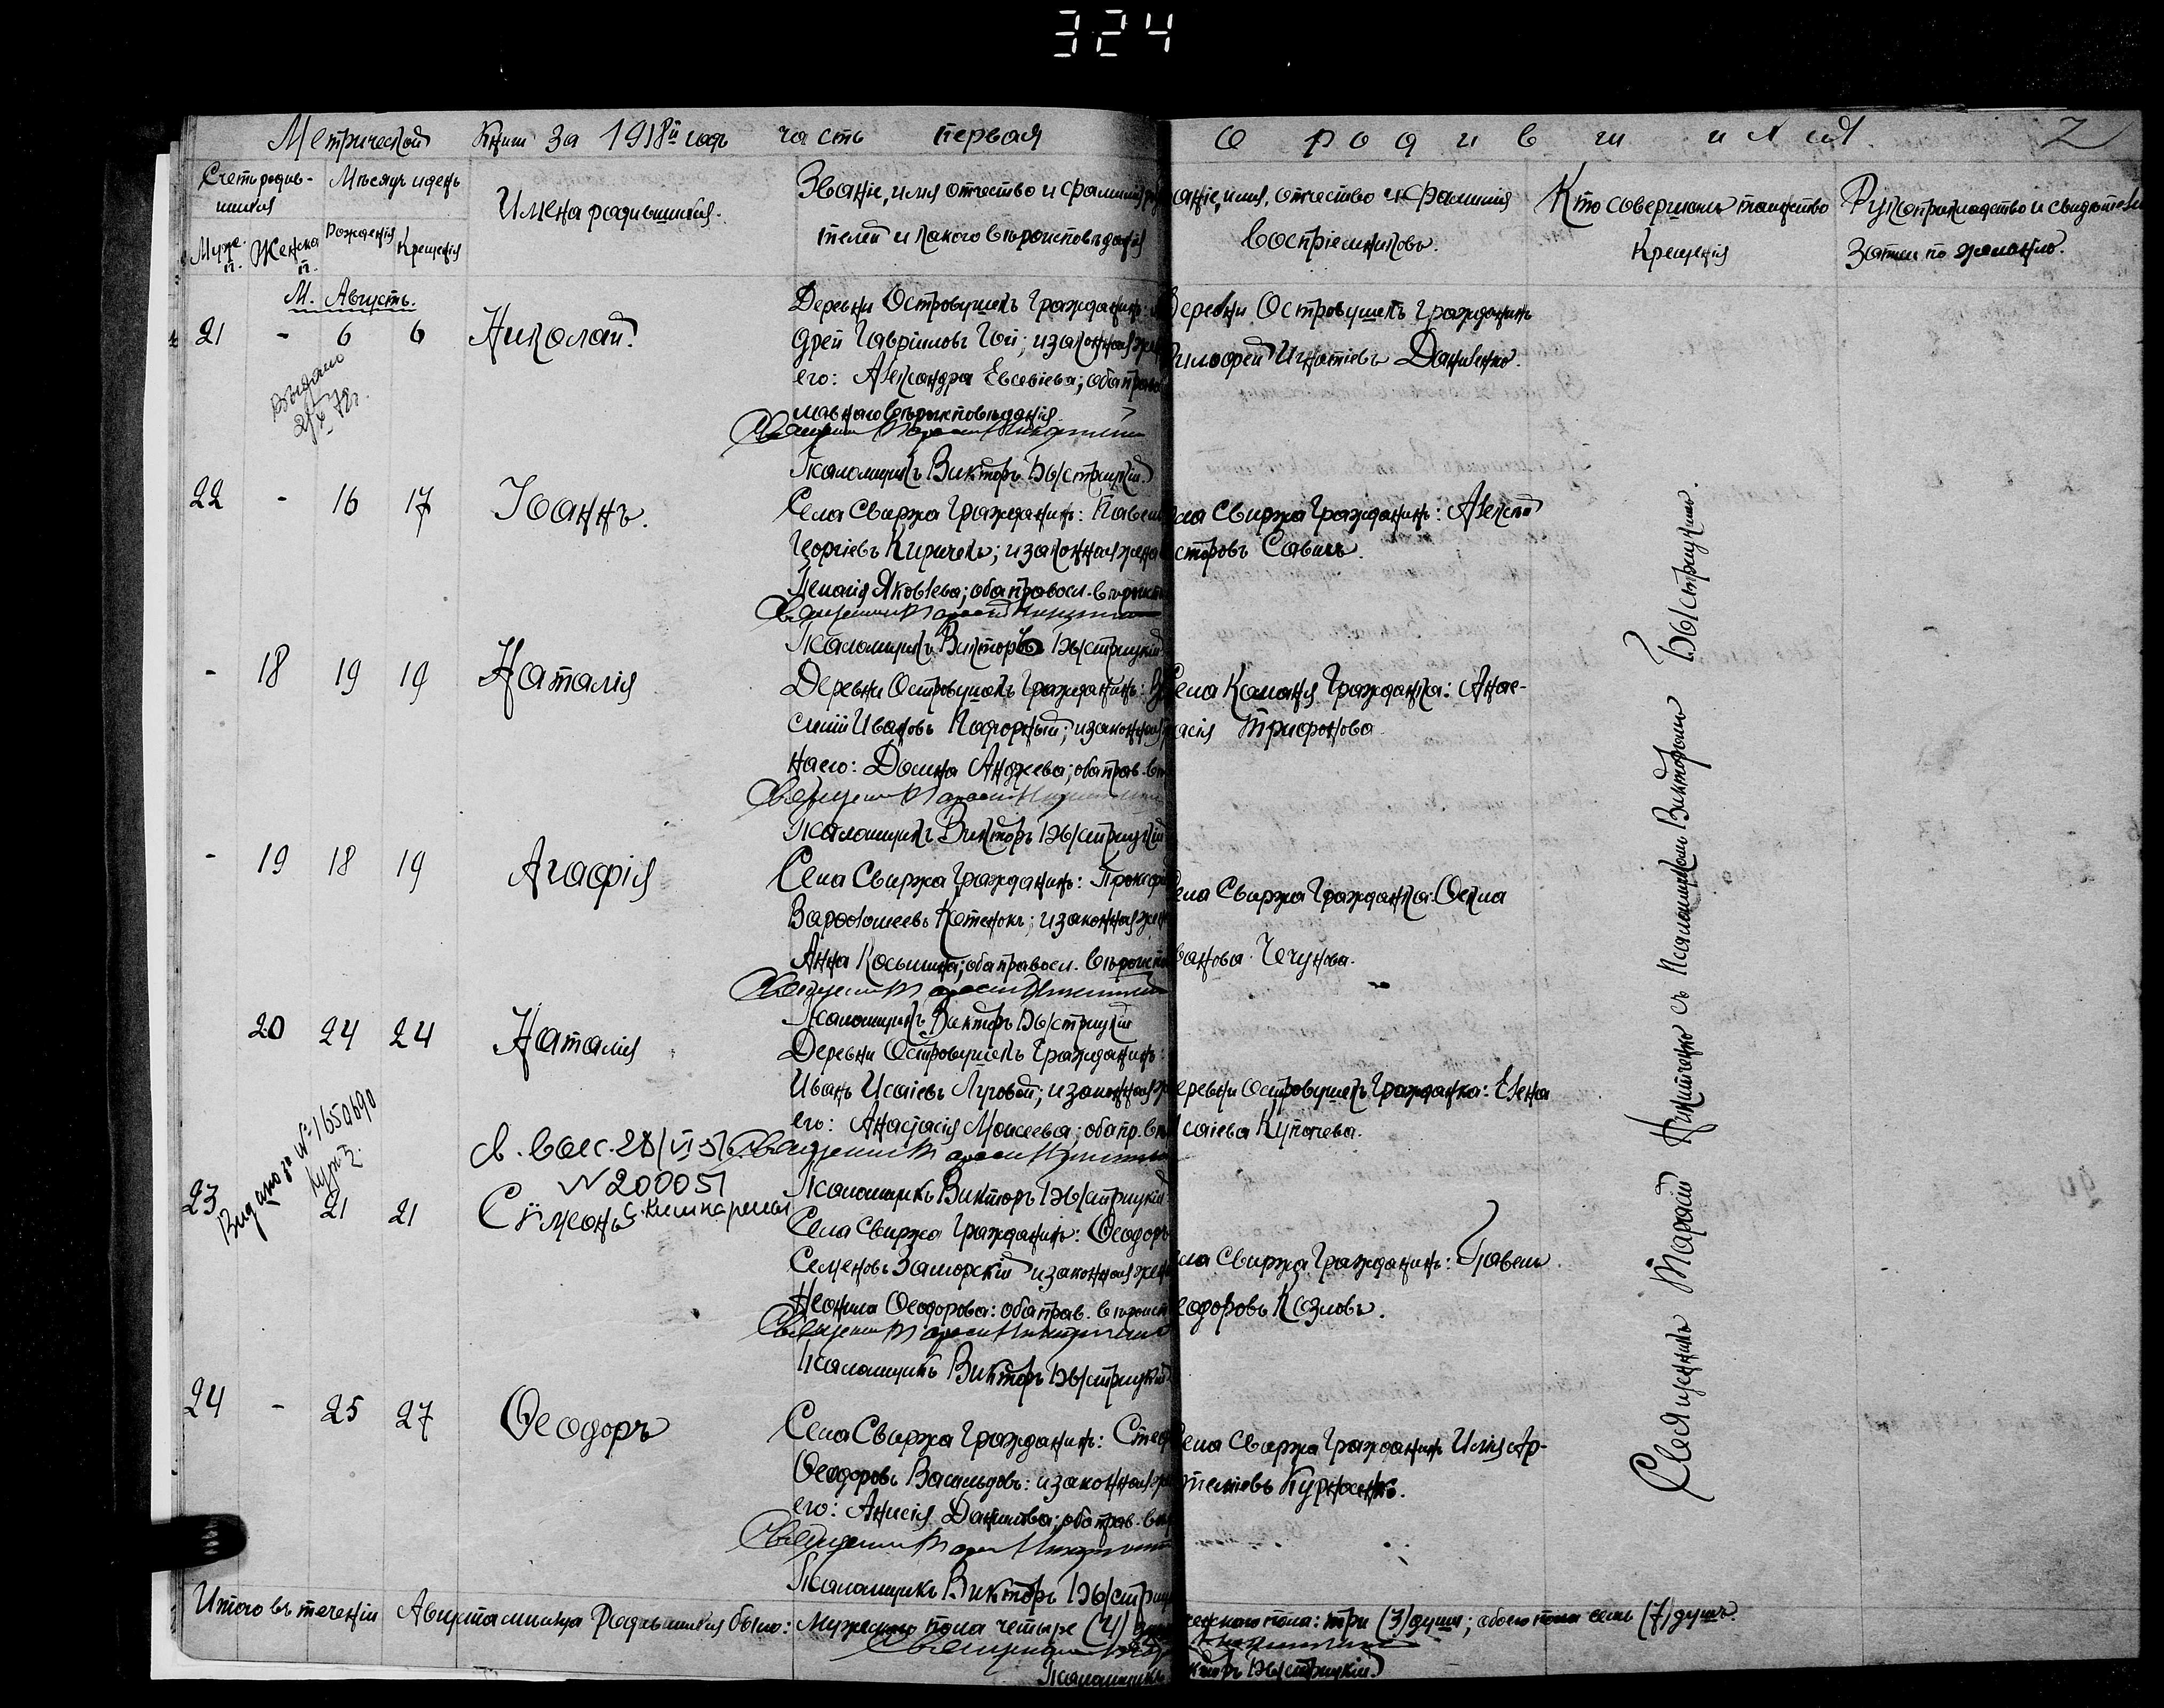 324
Метрической Книги за 1918й годъ часть первая о родившихся 7
Счетъ родив-
шихся
Муже. п. Женска п.
Мѣсяцъ и день
Рожденія Крещенія
Имена родившихся.
Званіе, имя отчество и фамилія роди
телей и какого вѣроисповѣданія
Званіе, имя, отчество и фамилія
Воспріемниковъ.
Кто совершалъ таинство
Крещенія
Рукоприкладство свидѣтелей
Записи по желанію.
М. Августъ.
21 - 6 6 Николай
Деревни Островушекъ Гражданинъ:
дрей Гавріиловъ Гой; и законная же
его: Александра Евсевіева; оба право
славнаго вѣроисповѣданія
Священникъ Тарасій Никитченко
Псаломщикъ Викторъ Быстрицкій
Деревни Островушекъ Гражданинъ
Тимофей Игнатіевъ Даниленко.
Выдано
22 - 16 17 Іоаннъ.
Села Свиржа Гражданинъ: Павелъ
Георгіевъ Киричекъ; и законная жена
Яковлева; оба правосл. вѣроисп
Священникъ Тарасій Никитченко
Псаломщикъ Викторъ Быстрицкій
Села Свиржа Гражданинъ: Алексѣй
Савичъ.
- 18 19 19 Наталія
Деревни Островушекъ Гражданинъ:
Ивановъ Нагорный; и законная
на его: Домна Андреева; оба прав. вѣ
Священникъ Тарасій Никитченко
Псаломщикъ Викторъ Быстрицкій
Села Каманя Гражданка: Анас-
тасія Трифонова
- 19 18 19 Агафія
Села Свиржа Гражданинъ: Прокофій
Варфоломеевъ Котенокъ; и законная жен
Анна Косьмина; оба правосл. вѣроисп
Священникъ Тарасій Никитченко
Псаломщикъ Викторъ Быстрицкій
Села Свиржа Гражданка: Ѳекла
Иванова Чечунова.
20 24 24 Наталія
Деревни Островушекъ Гражданинъ:
Иванъ Исаіевъ Луговой; и законная ж
его: Анастасія Моисеева; оба пр. вѣ
Священникъ Тарасій Никитченко
Псаломщикъ Викторъ Быстрицкій
Деревни Островушекъ Гражданка: Елена
Исаіева Купачева.
Видано за № 1650690
св. восс. 28/VI 51
№ 200051
23 21 21 Сѵмеонъ
Села Свиржа Гражданинъ: Ѳеодоръ
Семеновъ Заморскій и законная жен
Неонила Ѳеодорова: оба прав. вѣроисп
Священникъ Тарасій Никитченко
Псаломщикъ Викторъ Быстрицкій
Села Свиржа Гражданинъ: Павелъ
Ѳеодоровъ Козловъ.
24 - 25 27 Ѳеодоръ
Села Свиржа Гражданинъ: Стеф
Ѳеодоровъ: и законная ж
его: Анисія Даниилова; оба прав. вѣ
Священникъ Тарасій Никитченко
Псаломщикъ Викторъ Быстриц
Села Свиржа Гражданинъ Илія Ар-
теміевъ Курносенко.
Священникъ Тарасій Никитченко съ Псаломщикомъ Викторомъ Быстрицкимъ.
Итого въ теченіи Августа мѣсяца Родившихся было: Мужескаго пола четыре (4) душ женскаго пола: три (3) души; обоего пола семь (7) душъ.
Священникъ Тарасій Никитченко
Псаломщикъ Викторъ Быстрицкій